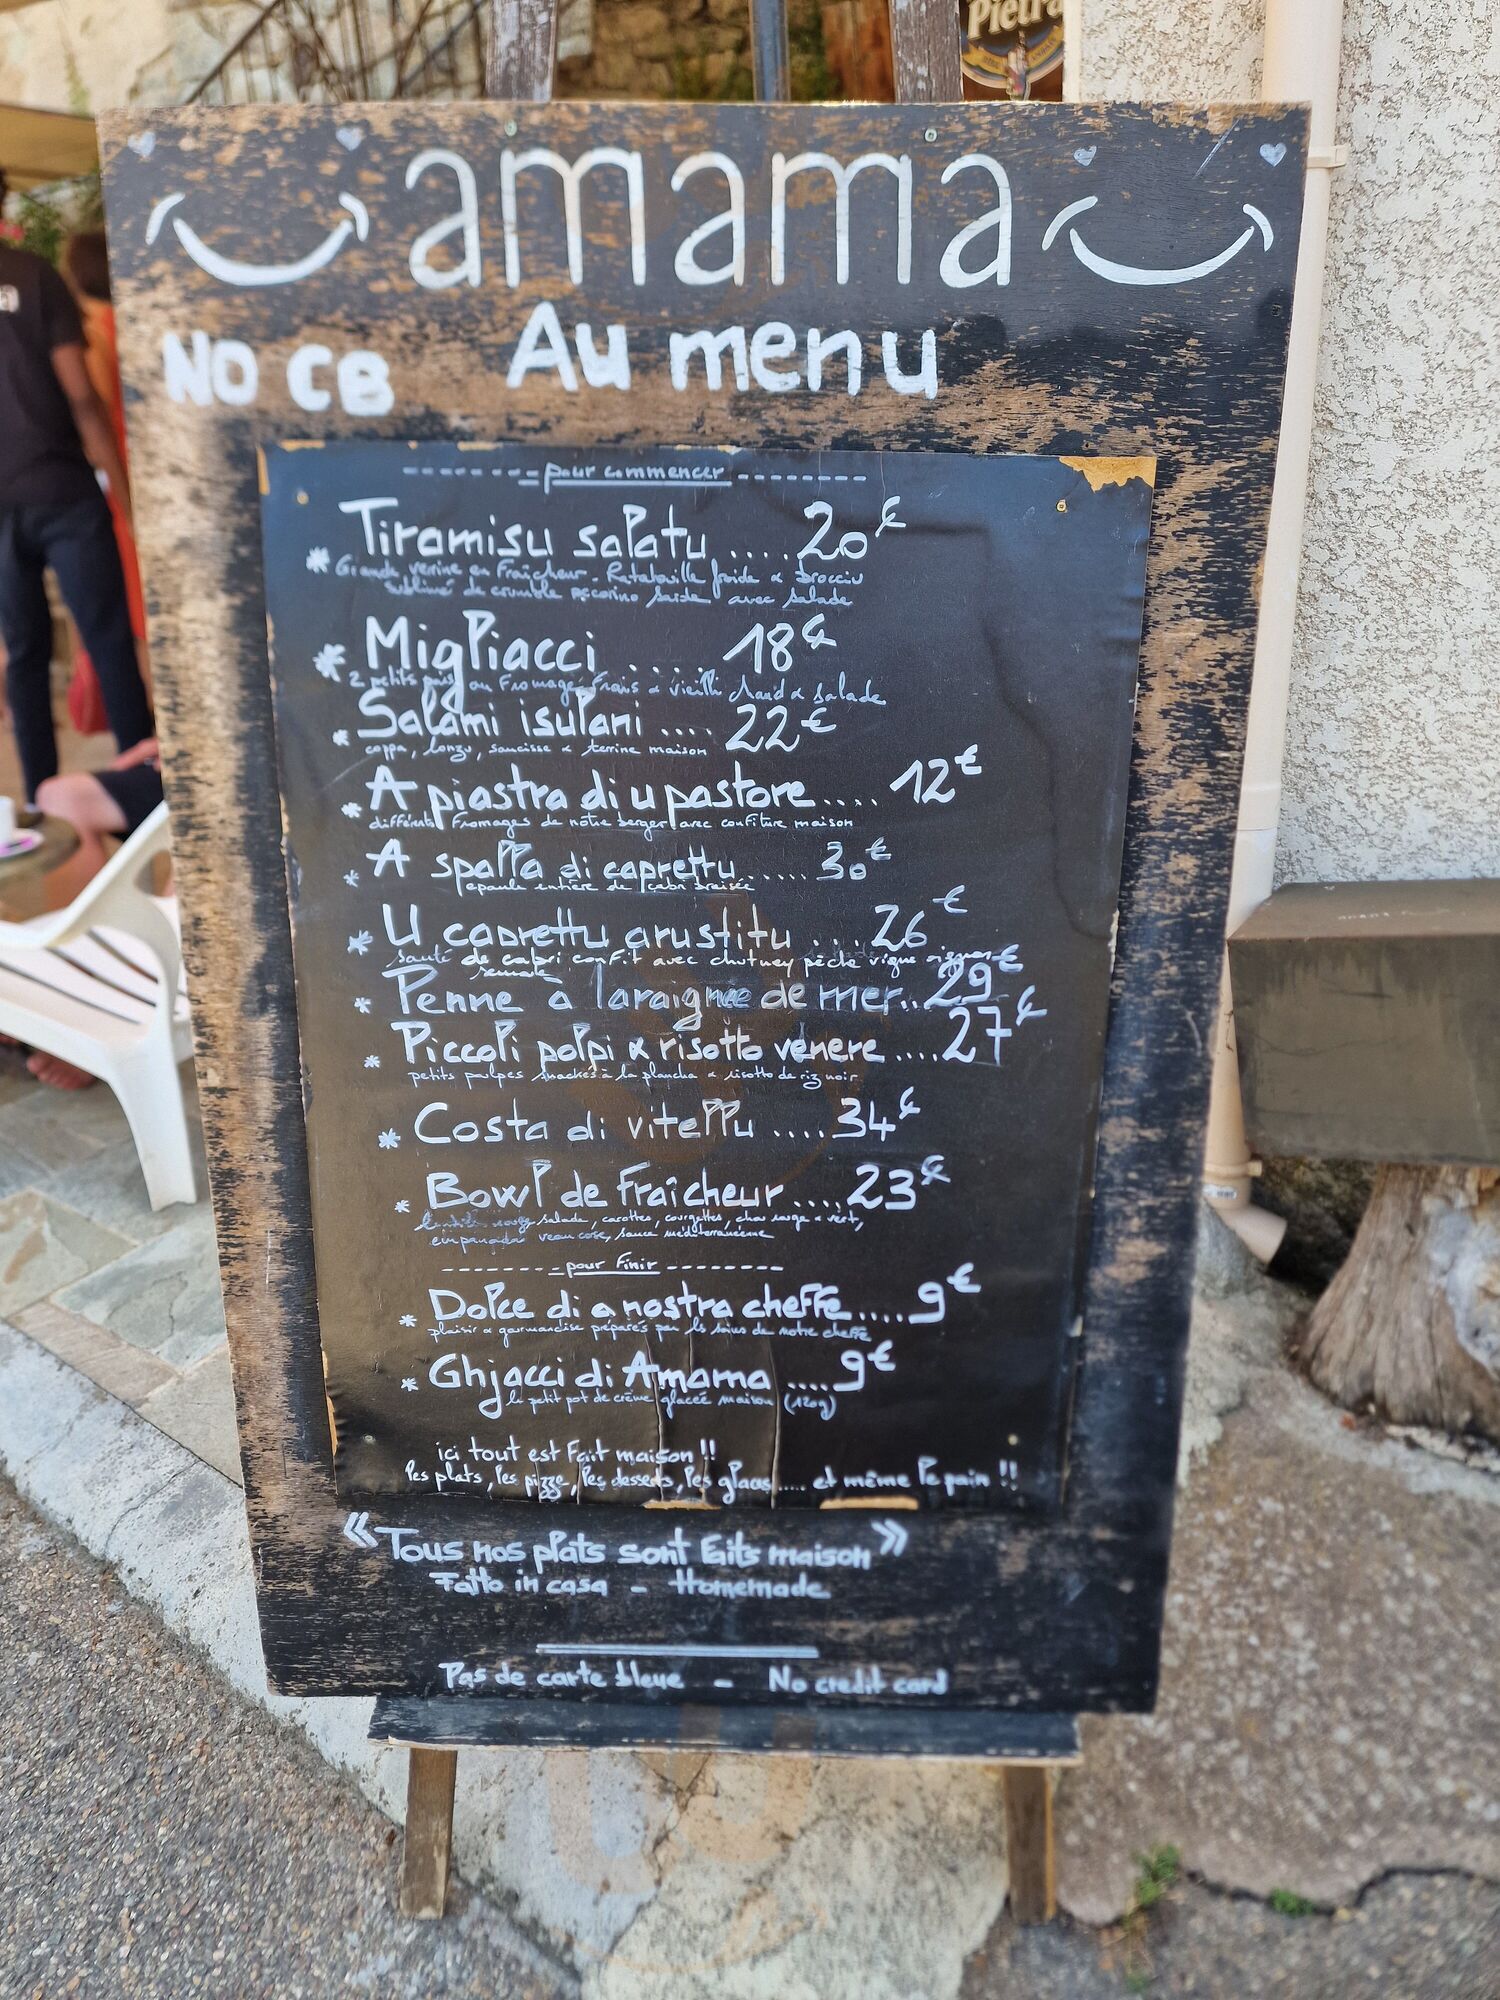 Pietra
amama
NO CB Au menu
pour commencer
* Tiramisu salatu .... 20€
Grande verine en Fraîcheur - Ratatouille froide & brocciu
sublimé de crumble pecorino sarde avec salade
* Migliacci ..... 18€
2 petits au Fromages Frais & vieilli chaud & salade
* Salami isulani .... 22€
coppa, lonzu, saucisse & terrine maison
* A piastra di u pastore .... 12€
différents Fromages de notre berger avec confiture maison
* A spalla di caprettu ...... 30€
epaule entière de cabri braisée
* U caprettu arustitu .... 26€
sauté de cabri confit avec chutney pêche vigne
* Penne à l araignée de mer.. 29€
* Piccoli polpi & risotto venere .... 27€
petits poulpes snackés à la plancha & risotto de riz noir
* Costa di vitellu .... 34€
* Bowl de Fraîcheur .... 23€
salade, carottes, courgettes, chou rouge & vert,
empanadas veau corse, sauce méditerranéenne
pour finir
* Dolce di a nostra cheffe .... 9€
plaisir & gourmandise préparés par les soins de notre cheffe
* Ghjacci di Amama .... 9€
le petit pot de crème glacée maison (120g)
ici tout est Fait maison !!
les plats, les pizze, les desserts, les glaces ..... et même le pain !!
"Tous nos plats sont faits maison"
Fatto in casa - Homemade
Pas de carte bleue - No credit card